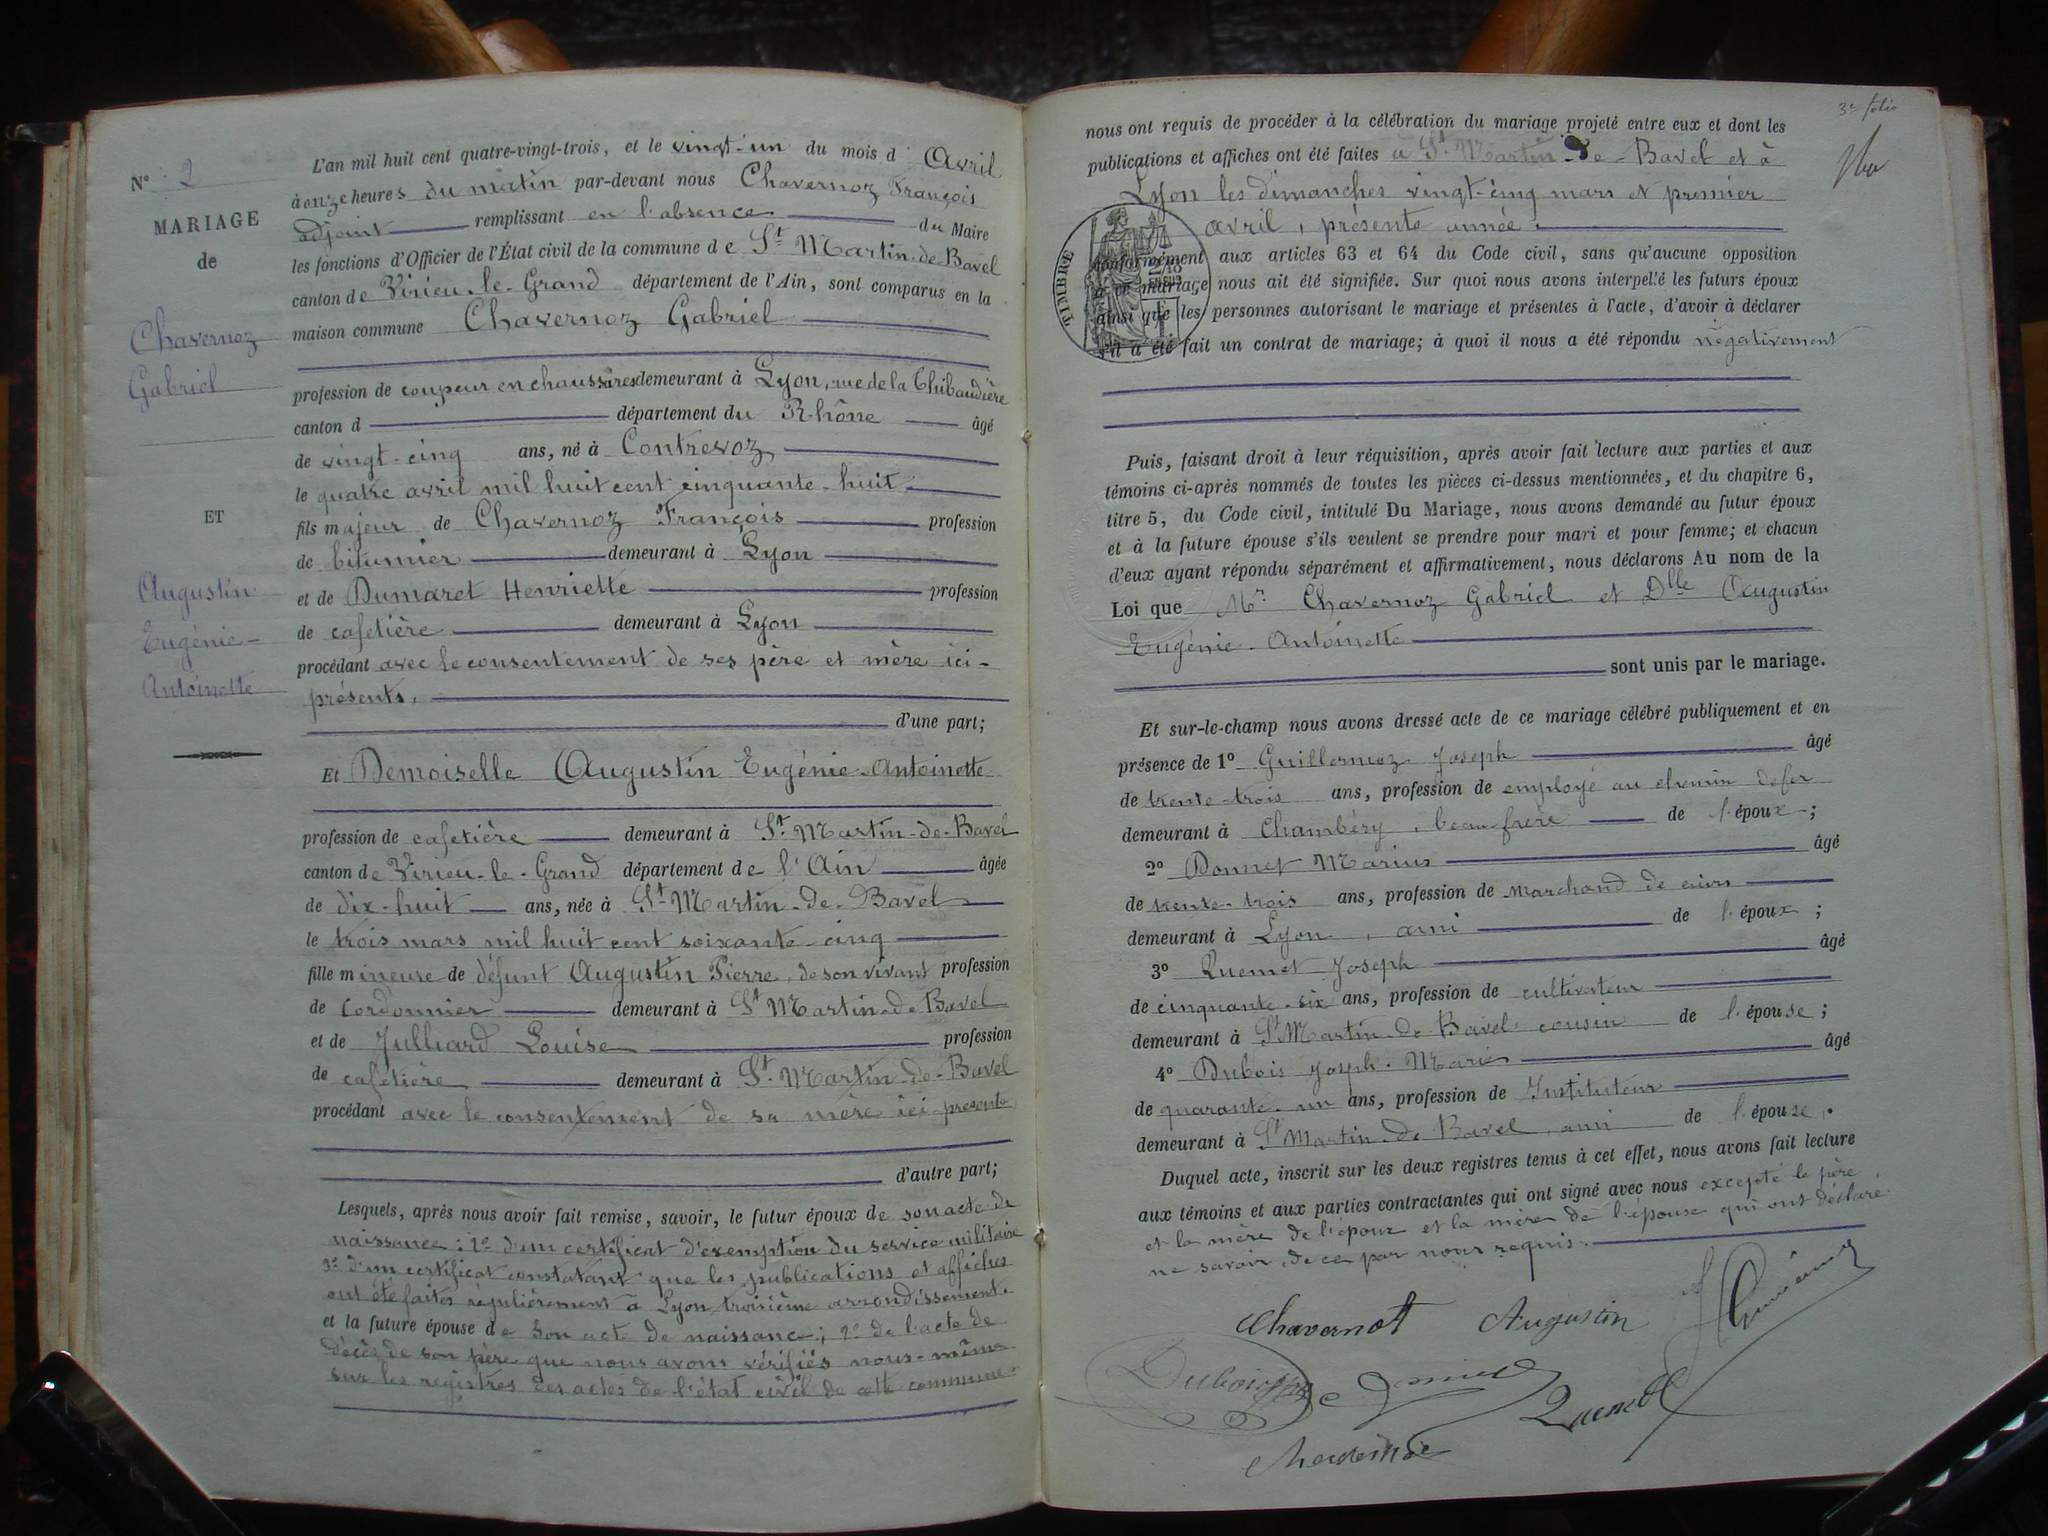 N° 2
MARIAGE
de
Chavernoz
Gabriel
ET
Augustin
Eugénie-
Antoinette
L'an mil huit cent quatre-vingt-trois, et le vingt-un du mois d'Avril
à onze heures du matin par-devant nous Chavernoz François
adjoint remplissant en l'absence du Maire
les fonctions d'Officier de l'État civil de la commune de St Martin-de-Bavel
canton de Virieu-le-Grand département de l'Ain, sont comparus en la
maison commune Chavernoz Gabriel
profession de coupeur en chaussures demeurant à Lyon, rue de la Thibaudière
canton d département du Rhône âgé
de vingt-cinq ans, né à Contrevoz
le quatre avril mil huit cent cinquante-huit
fils majeur de Chavernoz François profession
de bitumier demeurant à Lyon
et de Dumaret Henriette profession
de cafetière demeurant à Lyon
procédant avec le consentement de ses père et mère ici-
présents,
d'une part;
Et Demoiselle Augustin Eugénie-Antoinette
profession de cafetière demeurant à St Martin-de-Bavel
canton de Virieu-le-Grand département de l'Ain âgée
de dix-huit ans, née à St Martin-de-Bavel
le trois mars mil huit cent soixante-cinq
fille mineure de défunt Augustin Pierre, de son vivant profession
de cordonnier demeurant à St Martin-de-Bavel
et de Julliard Louise profession
de cafetière demeurant à St Martin-de-Bavel
procédant avec le consentement de sa mère ici-présente
d'autre part;
Lesquels, après nous avoir fait remise, savoir, le futur époux de son acte de
naissance; 2° d'un certificat d'exemption du service militaire
3° d'un certificat constatant que les publications et affiches
ont été faites régulièrement à Lyon troisième arrondissement.
et la future épouse de son acte de naissance; 2° de l'acte de
décès de son père que nous avons vérifiés nous-même
sur les registres des actes de l'état civil de cette commune.
3e folio
nous ont requis de procéder à la célébration du mariage projeté entre eux et dont les
publications et affiches ont été faites à St Martin-de-Bavel et à
Lyon les dimanches vingt-cinq mars et premier
avril, présente année.
TIMBRE
conformément aux articles 63 et 64 du Code civil, sans qu'aucune opposition
à ce mariage nous ait été signifiée. Sur quoi nous avons interpellé les futurs époux
ainsi que les personnes autorisant le mariage et présentes à l'acte, d'avoir à déclarer
s'il a été fait un contrat de mariage; à quoi il nous a été répondu négativement
Puis, faisant droit à leur réquisition, après avoir fait lecture aux parties et aux
témoins ci-après nommés de toutes les pièces ci-dessus mentionnées, et du chapitre 6,
titre 5, du Code civil, intitulé Du Mariage, nous avons demandé au futur époux
et à la future épouse s'ils veulent se prendre pour mari et pour femme; et chacun
d'eux ayant répondu séparément et affirmativement, nous déclarons Au nom de la
Loi que Mr Chavernoz Gabriel et Dlle Augustin
Eugénie-Antoinette
sont unis par le mariage.
Et sur-le-champ nous avons dressé acte de ce mariage célébré publiquement et en
présence de 1° Guillermoz Joseph âgé
de trente-trois ans, profession de employé au chemin de fer
demeurant à Chambéry, beau-frère de l'époux;
2° Donnet Marius âgé
de trente-trois ans, profession de marchand de cuirs
demeurant à Lyon, ami de l'époux;
3° Quemet Joseph âgé
de cinquante-six ans, profession de cultivateur
demeurant à St Martin-de-Bavel cousin de l'épouse;
4° Dubois Joseph-Marie âgé
de quarante-un ans, profession de Instituteur
demeurant à St Martin-de-Bavel, ami de l'épouse.
Duquel acte, inscrit sur les deux registres tenus à cet effet, nous avons fait lecture
aux témoins et aux parties contractantes qui ont signé avec nous excepté le père
et la mère de l'époux et la mère de l'épouse qui ont déclaré
ne savoir, de ce par nous requis.
Chavernot Augustin
Dubois
Quemet